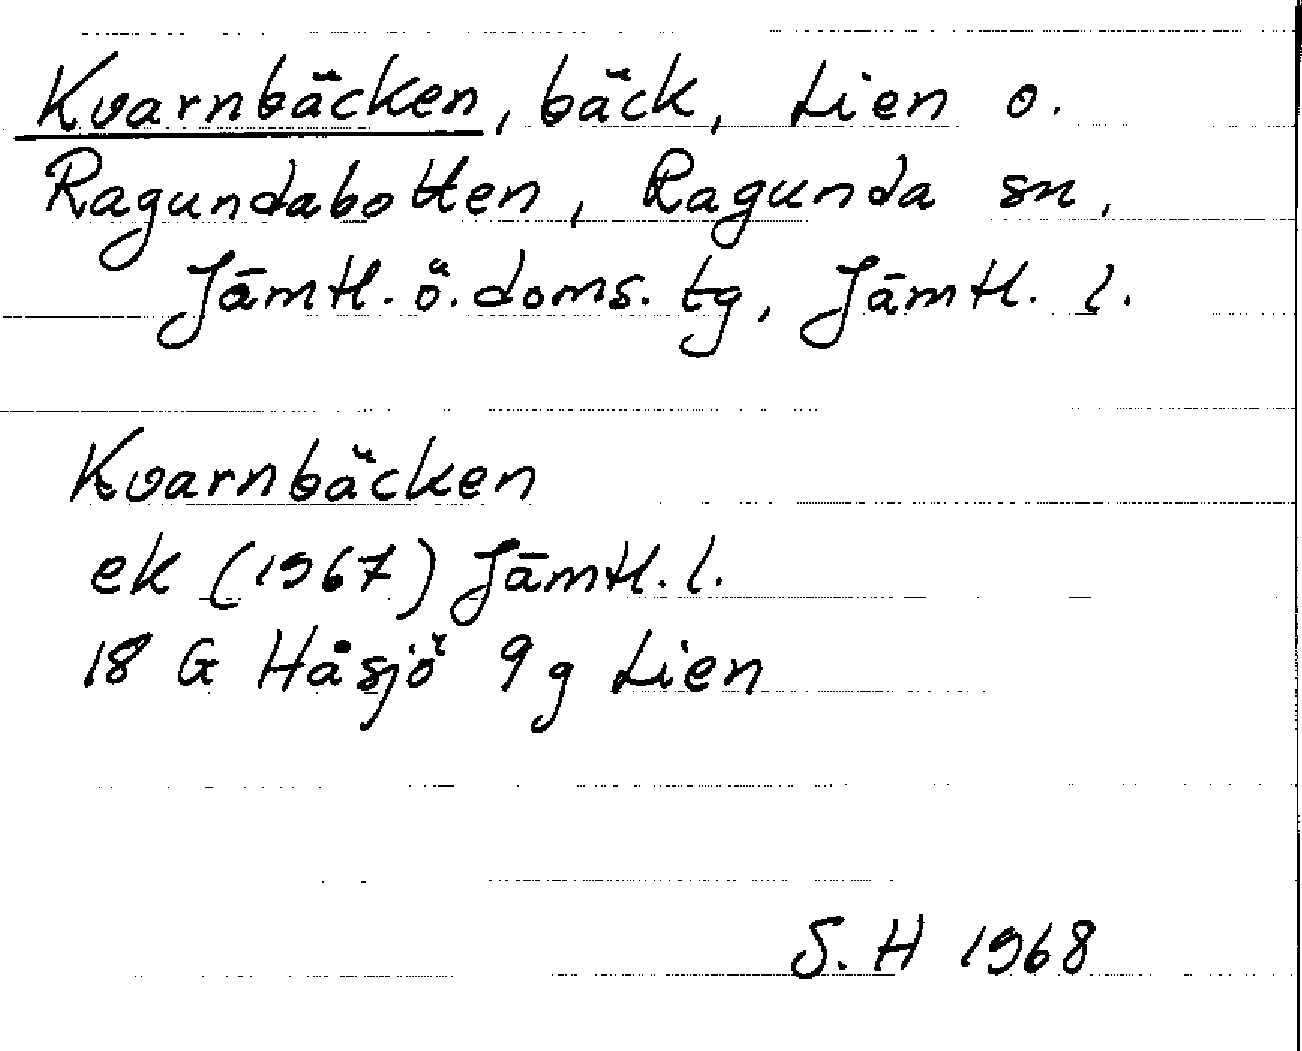 Kvarnbäcken, bäck, Lien o.
Ragundabotten, Ragunda sn,
Jämtl. ö. doms. tg, Jämtl. l.
Kvarnbäcken
ek (1967) Jämtl. l.
18 G Håsjö 9 g Lien
S. H 1968